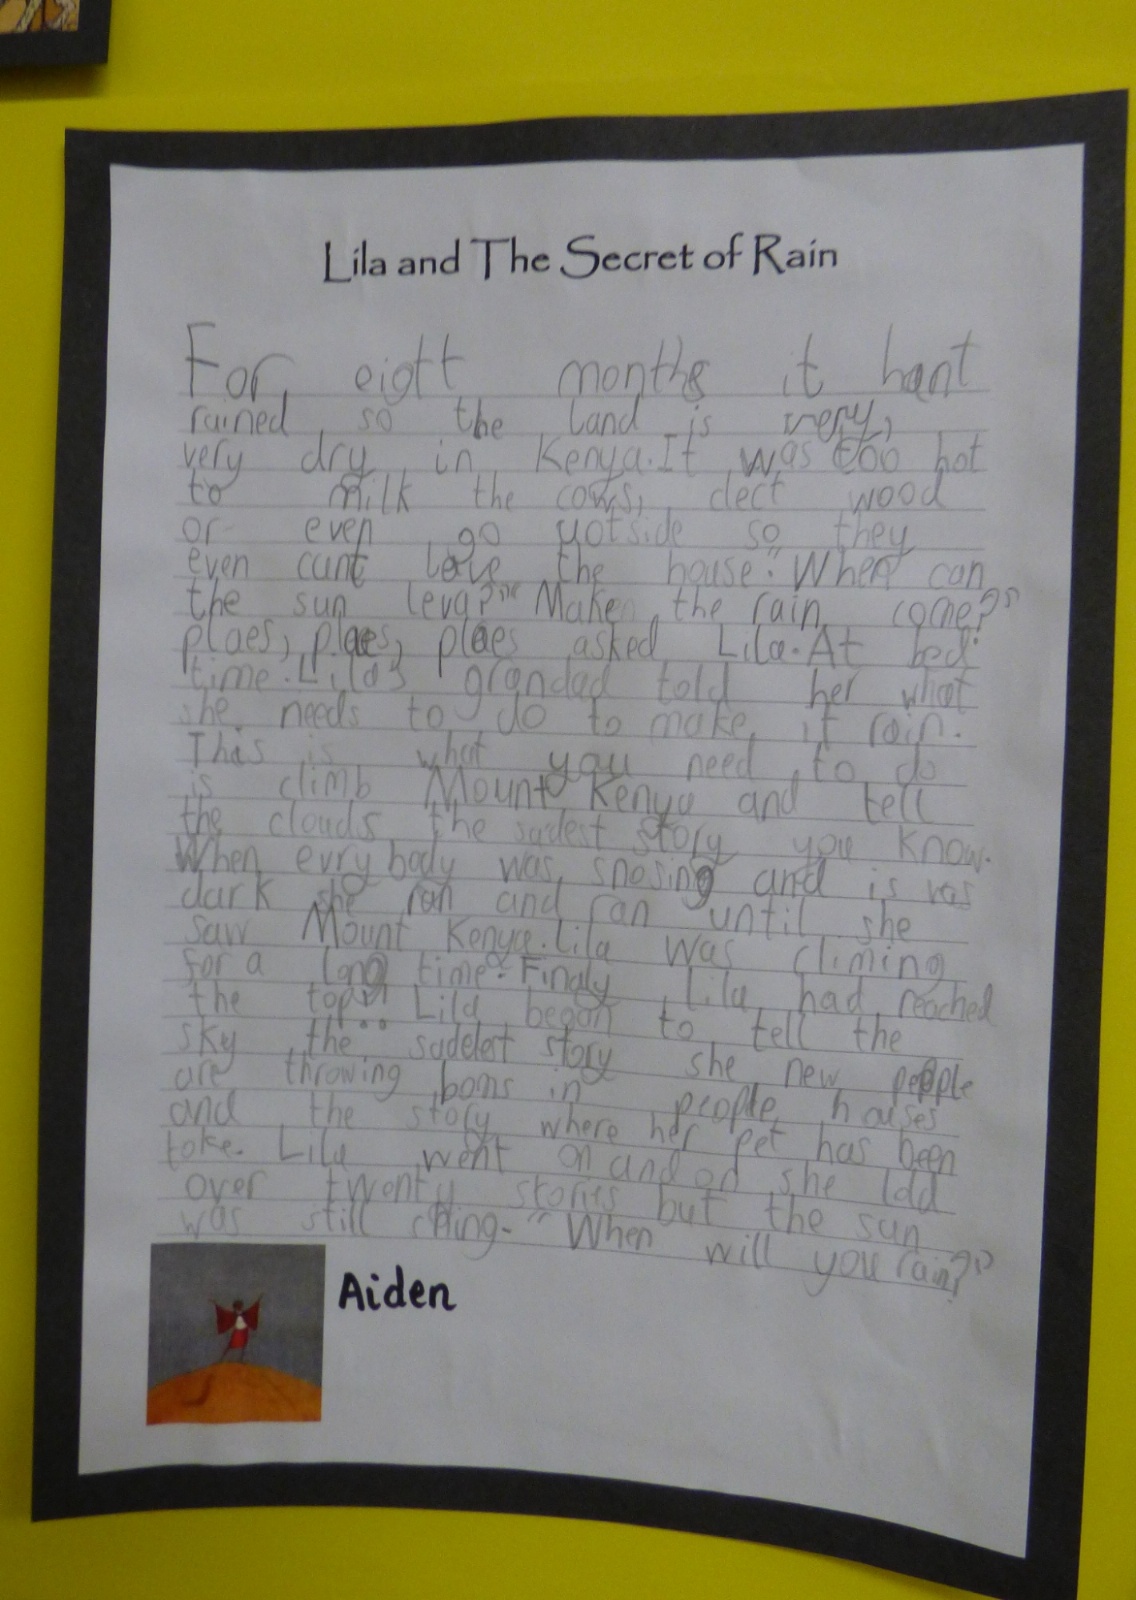 Lila and The Secret of Rain
For eigtt months it hant
rained so the land is very,
very dry in Kenya. It was too hot
to milk the cows, clect wood
or even go yotside so they
even cunt leave the house. "When can
the sun leva?" "Maken the rain come?"
plaes, plaes, plaes asked Lila. At bed
time. Lila's grandad told her what
she needs to do to make it rain.
This is what you need to do
is climb Mount Kenya and tell
the clouds the sadest story you know.
When evrybody was snosing and is was
dark she ran and ran until she
saw Mount Kenya. Lila was climing
for a long time. Finaly Lila had reached
the top. Lila began to tell the
sky the sadelest story she new people
are throwing boms in people houses
and the story where her pet has been
toke. Lila went on and on she told
over twenty stories but the sun
was still. "When will you rain?"
Aiden